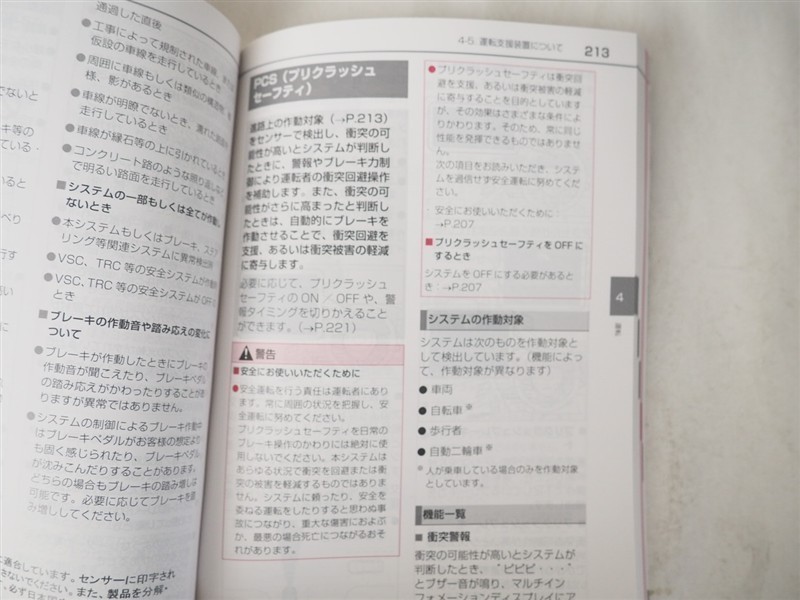 通過した直後
●工事によって規制された車線、または
仮設の車線を走行しているとき
●周囲に車線もしくは類似の構造物、
様、影があるとき
●車線が明瞭でないとき、濡れた路面を
走行しているとき
●車線が縁石等の上に引かれているとき
●コンクリート路のような照り返しなど
で明るい路面を走行しているとき
■システムの一部もしくは全てが作動し
ないとき
●本システムもしくはブレーキ、ステア
リング等関連システムに異常検出時
●VSC、TRC 等の安全システムが作動時
●VSC、TRC 等の安全システムが OFF の
とき
■ブレーキの作動音や踏み応えの変化に
ついて
●ブレーキが作動したときにブレーキの
作動音が聞こえたり、ブレーキペダル
の踏み応えがかわったりすることがあ
りますが異常ではありません。
●システムの制御によるブレーキ作動中
はブレーキペダルがお客様の想定より
も固く感じられたり、ブレーキペダル
が沈みこんだりすることがあります。
どちらの場合もブレーキの踏み増しは
可能です。必要に応じてブレーキを踏
み増ししてください。
適合しています。センサーに印字され
さないでください。また、製品を分解・
4-5. 運転支援装置について
213
PCS（プリクラッシュ
セーフティ）
進路上の作動対象（→P.213）
をセンサーで検出し、衝突の可
能性が高いとシステムが判断し
たときに、警報やブレーキ力制
御により運転者の衝突回避操作
を補助します。また、衝突の可
能性がさらに高まったと判断し
たときは、自動的にブレーキを
作動させることで、衝突回避を
支援、あるいは衝突被害の軽減
に寄与します。
必要に応じて、プリクラッシュ
セーフティの ON ／ OFF や、警
報タイミングを切りかえること
ができます。（→P.221）
警告
■安全にお使いいただくために
●安全運転を行う責任は運転者にあり
ます。常に周囲の状況を把握し、安
全運転に努めてください。
プリクラッシュセーフティを日常の
ブレーキ操作のかわりには絶対に使
用しないでください。本システムは
あらゆる状況で衝突を回避または衝
突の被害を軽減するものではありま
せん。システムに頼ったり、安全を
委ねる運転をしたりすると思わぬ事
故につながり、重大な傷害におよぶ
か、最悪の場合死亡につながるおそ
れがあります。
●プリクラッシュセーフティは衝突回
避を支援、あるいは衝突被害の軽減
に寄与することを目的としています
が、その効果はさまざまな条件によ
りかわります。そのため、常に同じ
性能を発揮できるものではありませ
ん。
次の項目をお読みいただき、システ
ムを過信せず安全運転に努めてくだ
さい。
・安全にお使いいただくために：
→P.207
■プリクラッシュセーフティを OFF に
するとき
システムを OFF にする必要があると
き：→P.207
システムの作動対象
システムは次のものを作動対象と
して検出しています。（機能によっ
て、作動対象が異なります）
●車両
●自転車※
●歩行者
●自動二輪車※
※人が乗車している場合のみを作動対象
としています。
機能一覧
■ 衝突警報
衝突の可能性が高いとシステムが
判断したとき、“ピピピ・・・”
とブザー音が鳴り、マルチイン
フォメーションディスプレイにア
4
運転